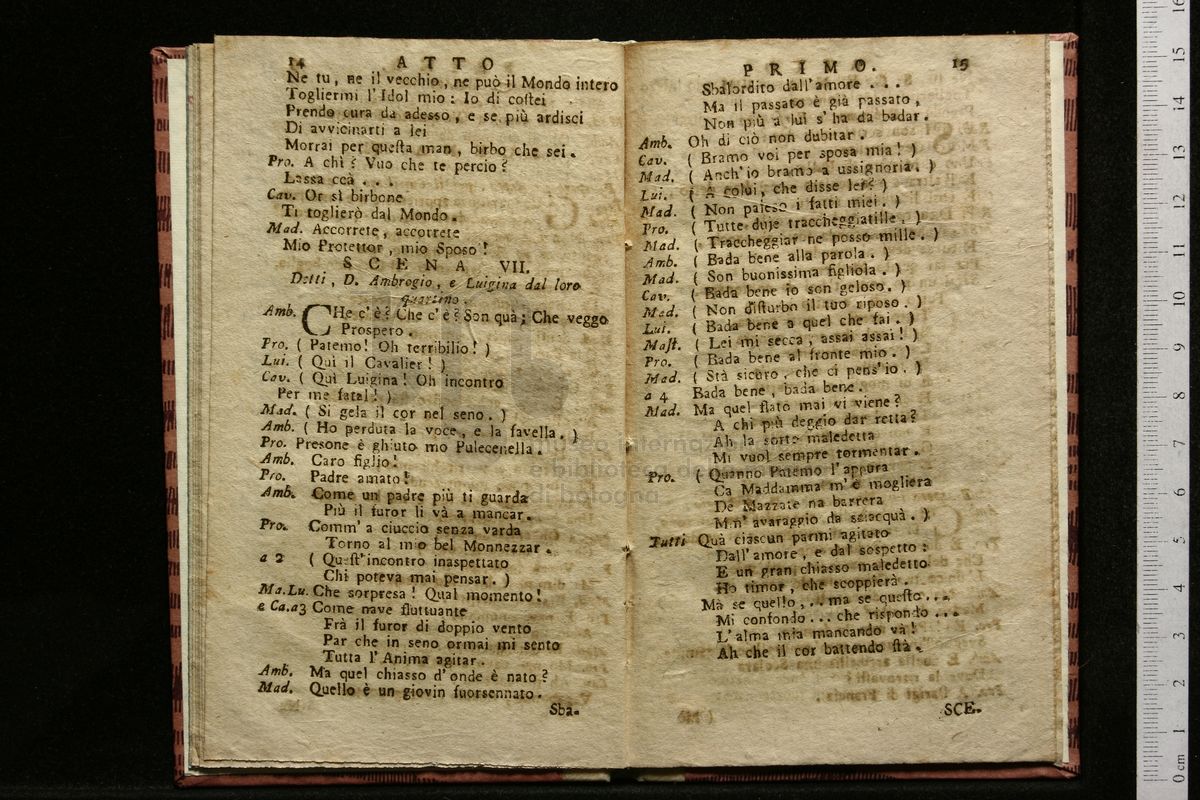 14 ATTO
Ne tu, ne il vecchio, ne può il Mondo intero
Togliermi l'Idol mio: Io di costei
Prendo cura da adesso, e se più ardisci
Di avvicinarti a lei
Morrai per questa man, birbo che sei.
Pro. A chì? Vuo che te percio?
Lassa ccà...
Cav. Or sì birbone
Ti toglierò dal Mondo.
Mad. Accorrete, accorrete
Mio Protettor, mio Sposo!
SCENA VII.
Detti, D. Ambrogio, e Luigina dal loro
quartino.
Amb. CHe c'è? Che c'è? Son quà; Che veggo
Prospero.
Pro. ( Patemo! Oh terribilio! )
Lui. ( Quì il Cavalier! )
Cav. ( Quì Luigina! Oh incontro
Per me fatal! )
Mad. ( Si gela il cor nel seno. )
Amb. ( Ho perduta la voce, e la favella. )
Pro. Presone è ghiuto mo Pulecenella.
Amb. Caro figlio!
Pro. Padre amato!
Amb. Come un padre più ti guarda
Più il furor li và a mancar.
Pro. Comm' a ciuccio senza varda
Torno al mio bel Monnezzar.
a 2 ( Quest'incontro inaspettato
Chi poteva mai pensar. )
Ma.Lu. Che sorpresa! Qual momento!
e Ca.a3 Come nave fluttuante
Frà il furor di doppio vento
Par che in seno ormai mi sento
Tutta l'Anima agitar.
Amb. Ma quel chiasso d'onde è nato?
Mad. Quello è un giovin fuorsennato.
Sba-
PRIMO. 15
Sbalordito dall'amore...
Ma il passato è già passato,
Non più a lui s'ha da badar.
Amb. Oh di ciò non dubitar.
Cav. ( Bramo voi per sposa mia! )
Mad. ( Anch'io bramo a ussignoria. )
Lui. ( A colui, che disse lei? )
Mad. ( Non paleso i fatti miei. )
Pro. ( Tutte duje traccheggiatille. )
Mad. ( Traccheggiar ne posso mille. )
Amb. ( Bada bene alla parola. )
Mad. ( Son buonissima figliola. )
Cav. ( Bada bene io son geloso. )
Mad. ( Non disturbo il tuo riposo. )
Lui. ( Bada bene a quel che fai. )
Mast. ( Lei mi secca, assai assai! )
Pro. ( Bada bene al fronte mio. )
Mad. ( Stà sicuro, che ci pens'io. )
a 4 Bada bene, bada bene.
Mad. Ma quel stato mai vi viene?
A chi più deggio dar retta?
Ah la sorte maledetta
Mi vuol sempre tormentar.
Pro. ( Quanno Patemo l'appura
Ca Maddamma m'è mogliera
De Mazzate na barrera
M.n' avaraggio da sciacquà. )
Tutti Quà ciascun parmi agitato
Dall'amore, e dal sospetto:
E un gran chiasso maledetto
Ho timor, che scoppierà.
Ma se quello,.. ma se questo...
Mi confondo... che rispondo...
L'alma mia mancando và!
Ah che il cor battendo stà.
SCE-
museo internaz
e biblioteca de
di bologna
0 cm 1 2 3 4 5 6 7 8 9 10 11 12 13 14 15 16